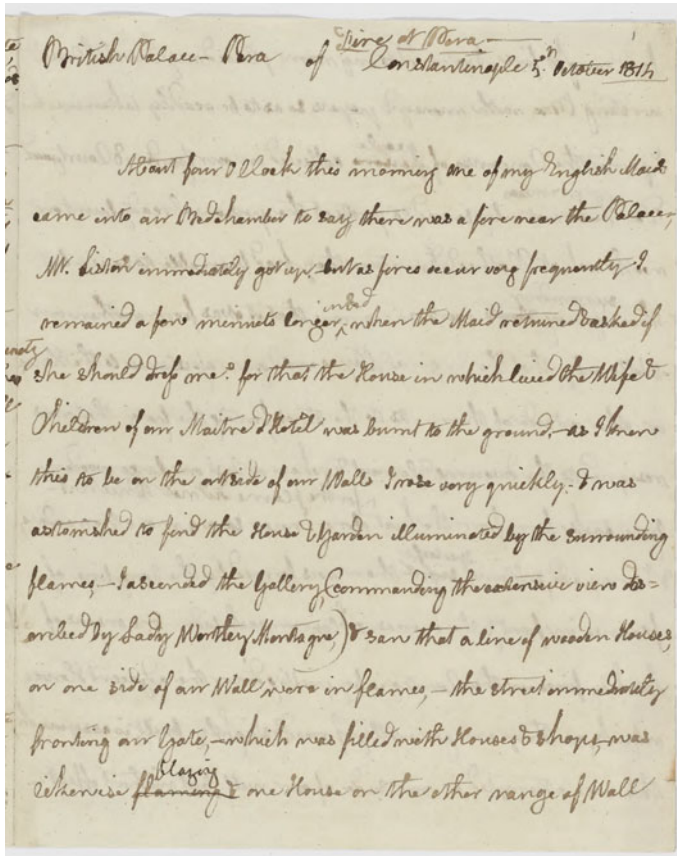 Fire at Pera —
British Palace – Pera of Constantinople 5th October 1814
About four O'Clock this morning one of my English Maids
came into our Bedchamber to say there was a fire near the Palace,
Mr. Liston immediately got up – but as fires occur very frequently I
in bed
remained a few minuets longer, when the Maid returned & asked if
she should dress me? for that the House in which lived the Wife &
Children of our Maitre d'Hotel was burnt to the ground, – as I knew
this to be on the outside of our Walls I rose very quickly – & was
astonished to find the House & Garden illuminated by the surrounding
flames, – I ascended the Gallery, (commanding the extensive view des=
cribed by Lady Wortley Montague,) & saw that a line of wooden Houses,
on one side of our Wall were in flames, – the street immediately
fronting our Gate, – which was filled with Houses & shops, was
blazing
likewise flaming & one House on the other range of Wall